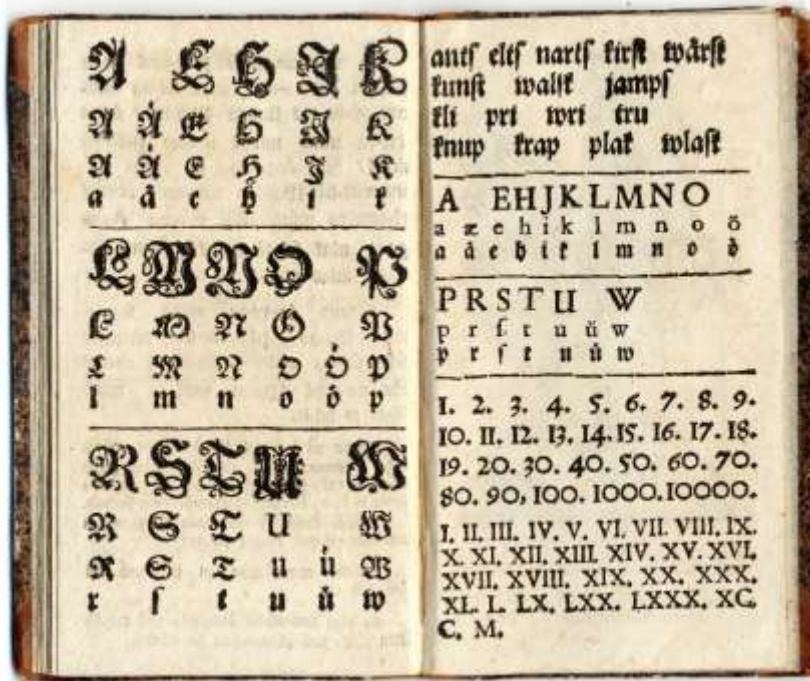 A E H J K
A Å E H J K
A Å E H J K
a å e h i k
L M N O P
L M N O P
L M N O Ö P
l m n o ö p
R S T U W
R S T U W
R S T U Ü W
r ſ t u ů w
antſ eltſ nartſ kirſt wårſt
kunſt walſk jampſ
kli pri wri tru
knup krap plak wlaſt
A EHJKLMNO
a æ e h i k l m n o ö
a å e h i k l m n o ö
PRSTU W
p r ſ t u ü w
p r ſ t u ů w
1. 2. 3. 4. 5. 6. 7. 8. 9.
10. 11. 12. 13. 14. 15. 16. 17. 18.
19. 20. 30. 40. 50. 60. 70.
80. 90, 100. 1000. 10000.
I. II. III. IV. V. VI. VII. VIII. IX.
X. XI. XII. XIII. XIV. XV. XVI.
XVII. XVIII. XIX. XX. XXX.
XL. L. LX. LXX. LXXX. XC.
C. M.